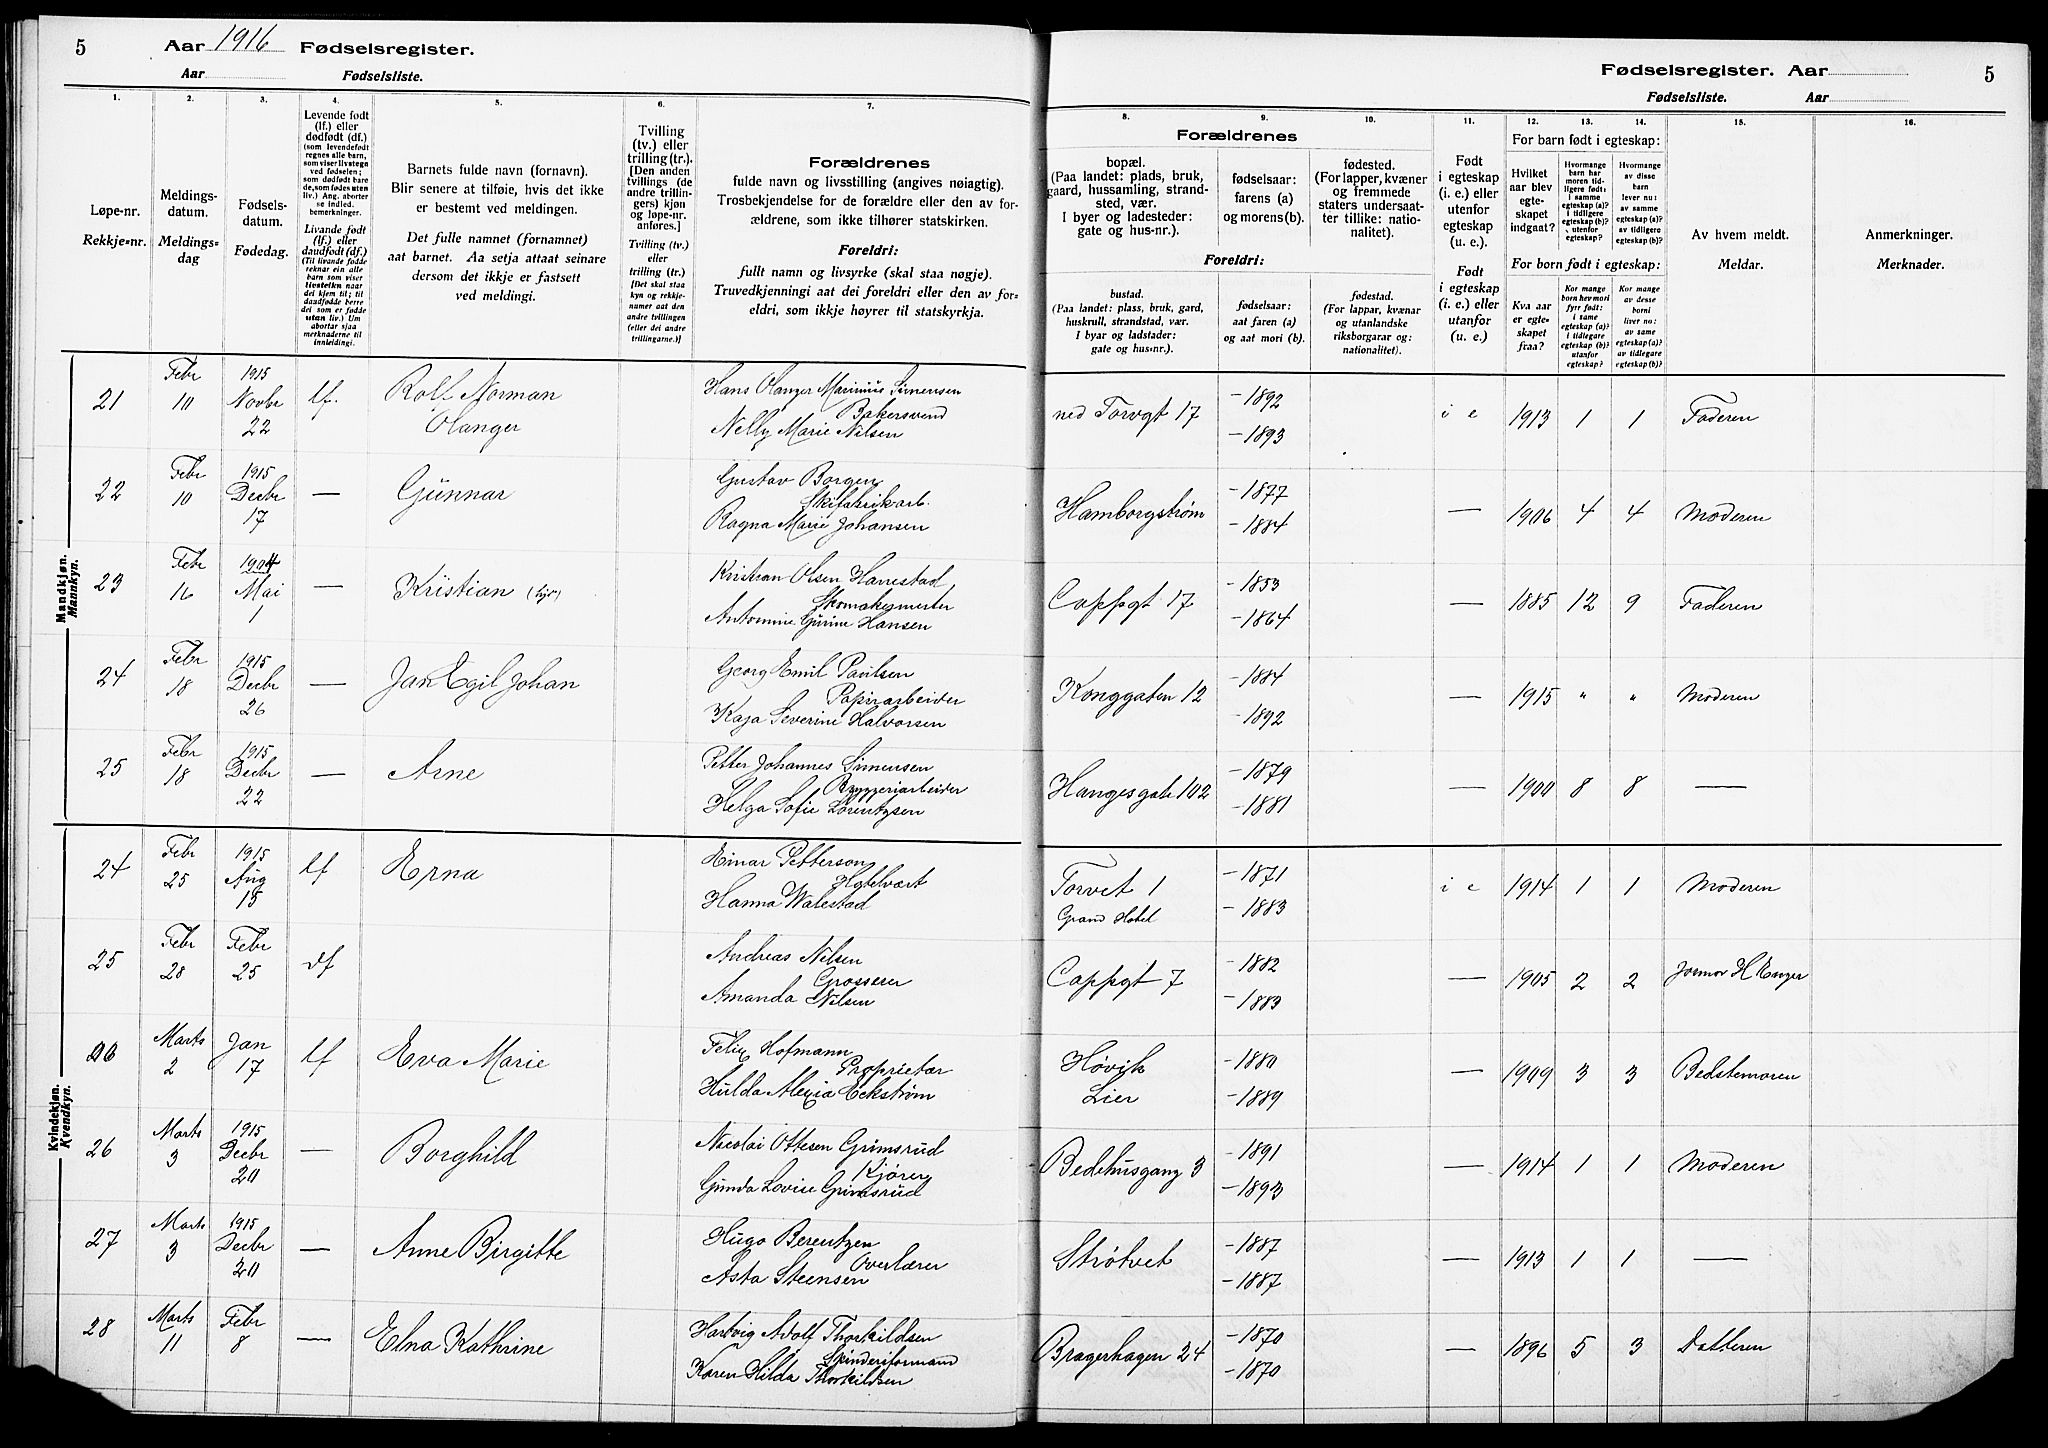 5 Aar 1916 Fødselsregister.
Aar Fødselsliste.
Fødselsregister. Aar 5
Fødselsliste. Aar
1. 2. 3. 4. 5. 6. 7.
8. 9. 10. 11. 12. 13. 14. 15. 16.
Løpe-nr.
Rekkje-nr.
Meldings-
datum.
Meldings-
dag
Fødsels-
datum.
Fødedag.
Levende født
(lf.) eller
dødfødt (df.)
(som levendefødt
regnes alle barn,
som viser livstegn
ved fødselen;
som dødfødt bare
de, som fødes uten
liv.) Ang. aborter
se indled.
bemerkninger.
Livande født
(lf.) eller
daudfødt (df.)
(Til livande fødde
reknar ein alle
barn som viser
livsteikn naar
dei kjem til; til
daudfødde berre
dei som er fødde
utan liv.) Um
abortar sjaa
merknaderne til
innleidingi.
Barnets fulde navn (fornavn).
Blir senere at tilføie, hvis det ikke
er bestemt ved meldingen.
Det fulle namnet (fornamnet)
aat barnet. Aa setja attaat seinare
dersom det ikkje er fastsett
ved meldingi.
Tvilling
(tv.) eller
trilling (tr.).
[Den anden
tvillings (de
andre trillin-
gers) kjøn
og løpe-nr.
anføres.]
Tvilling (tv.)
eller
trilling (tr.)
[Det skal staa
kyn og rekkje-
numer aat den
andre tvillingen
(eller dei andre
trillingarne.)]
Forældrenes
fulde navn og livsstilling (angives nøiagtig).
Trosbekjendelse for de forældre eller den av for-
ældrene, som ikke tilhører statskirken.
Foreldri:
fullt namn og livsyrke (skal staa nøgje).
Truvedkjenningi aat dei foreldri eller den av for-
eldri, som ikkje høyrer til statskyrkja.
Forældrenes
bopæl.
(Paa landet: plads, bruk,
gaard, hussamling, strand-
sted, vær.
I byer og ladesteder:
gate og hus-nr.).
fødselsaar:
farens (a)
og morens (b).
fødested.
(For lapper, kvæner
og fremmede
staters undersaat-
ter tillike: natio-
nalitet).
Foreldri:
bustad.
(Paa landet: plass, bruk, gard,
huskrull, strandstad, vær.
I byar og ladstader:
gate og hus-nr.).
fødselsaar:
aat faren (a)
og aat mori (b).
fødestad.
(For lappar, kvænar
og utanlandske
riksborgarar og:
nationalitet).
Født
i egteskap
(i. e.) eller
utenfor
egteskap
(u. e.).
Født
i egteskap
(i. e.) eller
utanfor
(u. e.).
For barn født i egteskap:
Hvilket
aar blev
egte-
skapet
indgaat?
Hvormange
barn har
moren tid-
ligere født:
i samme
egteskap (a)?
i tidligere
egteskap (b)?
utenfor
egteskap?
Hvormange
av disse
barn
lever nu:
av samme
egteskap (a)?
av tidligere
egteskap (b)?
For born født i egteskap:
Kva aar
er egte-
skapet
fraa?
Kor mange
born hev mori
fyrr født:
i same
egteskap (a)?
i tidlegare
egteskap (b)?
utanfor
egteskap?
Kor mange
av desse
borni
liver no:
av same
egteskap (a)?
av tidlegare
egteskap (b)?
Av hvem meldt.
Meldar.
Anmerkninger.
Merknader.
Mandkjøn.
Mannkyn.
21 Febr 10 1915 Novbr 22 lf. Rolf Norman Olanger
Hans Olanger Marinius Simensen
Bakersvend
Nelly Marie Nilsen
ned Torvgt 17 -1892 -1893 i e 1913 1 1 Faderen
22 Febr 10 1915 Decbr 17 — Gunnar
Gustav Borgen
Skifabrikarb.
Ragna Marie Johansen
Hamborgstrøm -1877 -1884 — 1906 4 4 Moderen
23 Febr 16 1904 Mai 1 — Kristian
Kristian Olsen Hanestad
Skomakermester
Antomine Gurine Hansen
Cappgt 17 -1853 -1864 — 1885 12 9 Faderen
24 Febr 18 1915 Decbr 26 — Jan Egil Johan
Georg Emil Paulsen
Papirarbeider
Kaja Severine Halvorsen
Konggaten 12 -1884 -1892 — 1915 " " Moderen
25 Febr 18 1915 Decbr 22 — Arne
Petter Johannes Simensen
Bryggeriarbeider
Helga Sofie Lorentzsen
Haugesgate 102 -1879 -1881 — 1900 8 8 —
Kvindekjøn.
Kvendkyn.
24 Febr 25 1915 Aug 15 lf Erna
Einar Petterson
Hotelvært
Hanna Walestad
Torvet 1 Grand Hotel -1871 -1883 i e 1914 1 1 Moderen
25 Febr 28 Febr 25 df
Andreas Nilsen
Grosserer
Amanda Nilsen
Cappgt 7 -1882 -1883 — 1905 2 2 Jormor H Enger
26 Marts 2 Jan 17 lf Eva Marie
Felix Hofmann
Proprietær
Hulda Alexia Eckstrøm
Høvik Lier -1880 -1889 — 1909 3 3 Bedstemoren
26 Marts 3 1915 Decbr 20 — Borghild
Nicolai Ottesen Grimsrud
Kjører
Gunda Lovise Grimsrud
Bedehusgang 3 -1891 -1893 — 1914 1 1 Moderen
27 Marts 3 1915 Decbr 20 — Anne Birgitte
Hugo Berentzen
Overlærer
Asta Steensen
Strøtvet -1887 -1887 — 1913 1 1 —
28 Marts 11 Febr 8 — Elna Kathrine
Hartvig Adolf Thorkildsen
Spinderiformand
Karen Hilda Thorkildsen
Bragerhagen 24 -1870 -1870 — 1896 5 3 Datteren